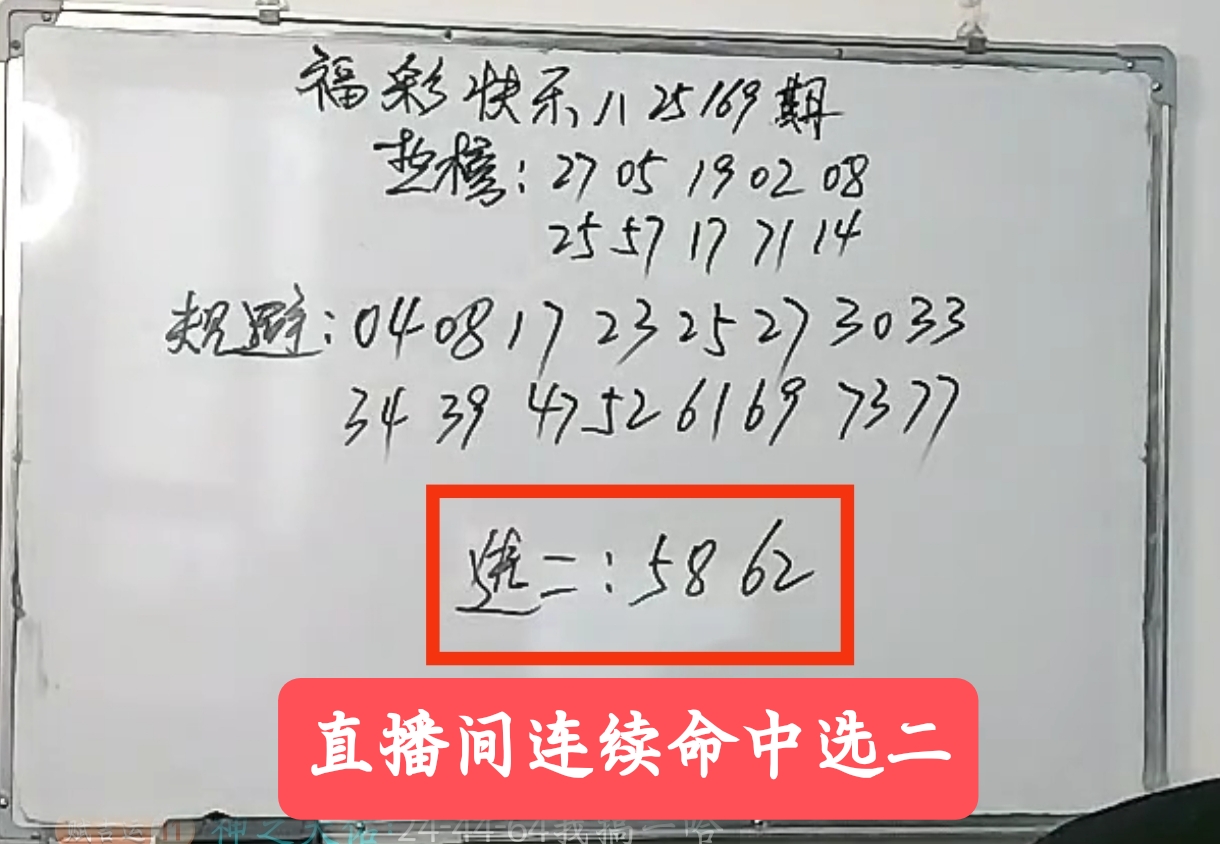 福彩快乐八25169期
热模：27 05 19 02 08
25 57 17 71 14
规避：04 08 17 23 25 27 30 33
34 39 47 52 61 69 73 77
选二：58 62
直播间连续命中选二
24-44-64我搞一哈